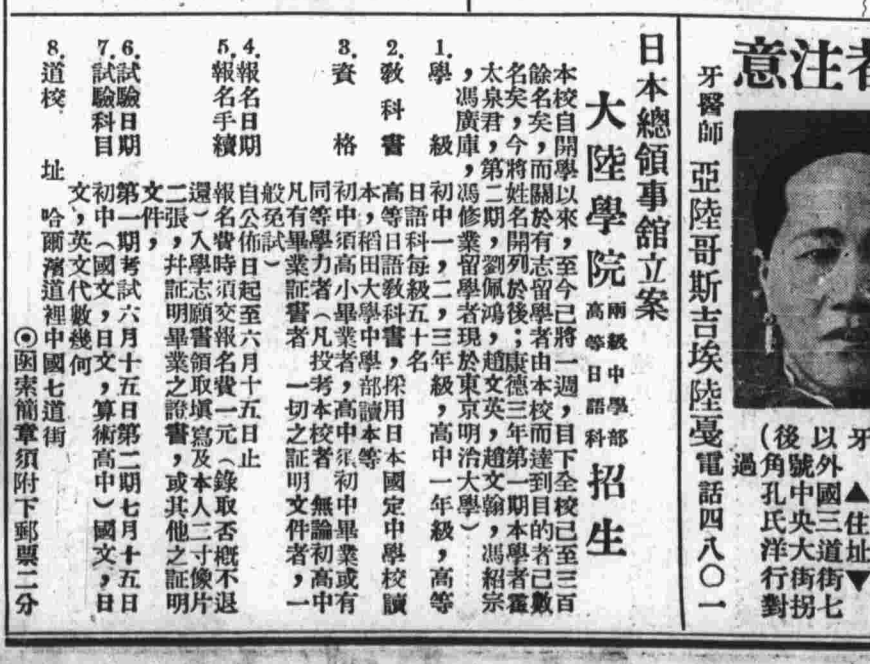 者注意
牙醫師 亞陸哥斯吉埃陸戞電話四八〇一
牙▲住址▼
以外國三道街七
後號中央大街拐
(角孔氏洋行對
過
日本總領事舘立案
大陸學院 兩級中學部 高等日語科 招生
本校自開學以來,至今已將一週,目下全校已至三百
餘名矣,而關於有志留學者由本校而達到目的者已數
名矣,今將姓名開列於後;康德三年第一期本學者霍
太泉君,第二期,劉佩鴻,趙文英,趙文翰,馮紹宗
,馮廣庫,馮修業留學者現於東京明治大學)
1.學級 初中一,二,三年級,高中一年級,高等
日語科每級五十名
2.敎科書 高等日語敎科書,採用日本國定中學校讀
本,稻田大學中學部讀本等
3.資格 初中須高小畢業者,高中須初中畢業或有
同等學力者(凡投考本校者 無論初高中
凡有畢業証書者 一切之証明文件者,一
般免試)
4.報名日期 自公佈日起至六月十五日止
5.報名手續 報名費時須交報名費一元(錄取否概不退
還)入學志願書領取填寫及本人三寸像片
二張,幷証明畢業之證書,或其他之証明
文件,
6.試驗日期 第一期考試六月十五日第二期七月十五日
7.試驗科目 初中(國文,日文,算術高中)國文,日
文,英文代數幾何
8.道校址 哈爾濱道裡中國七道街
◉函索簡章須附下郵票二分